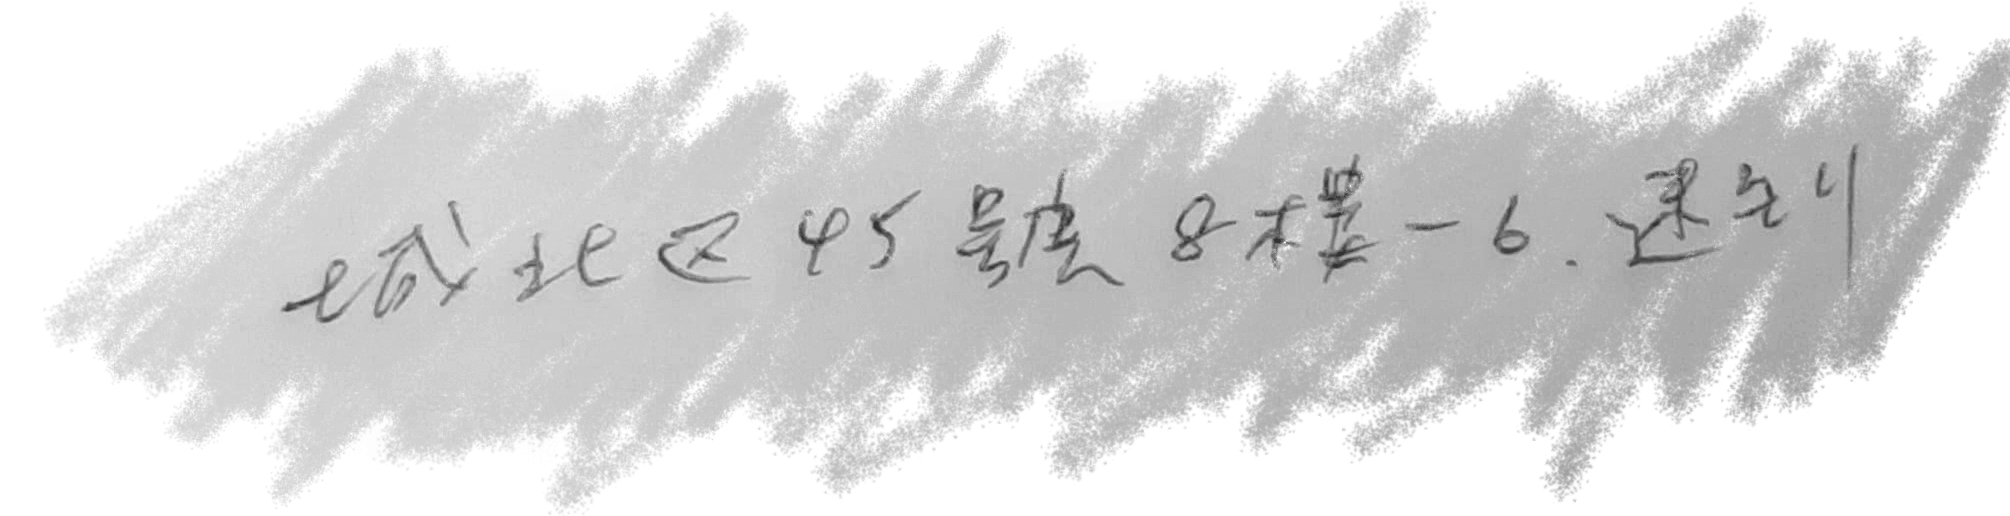 城北区45號8樓-6.速到